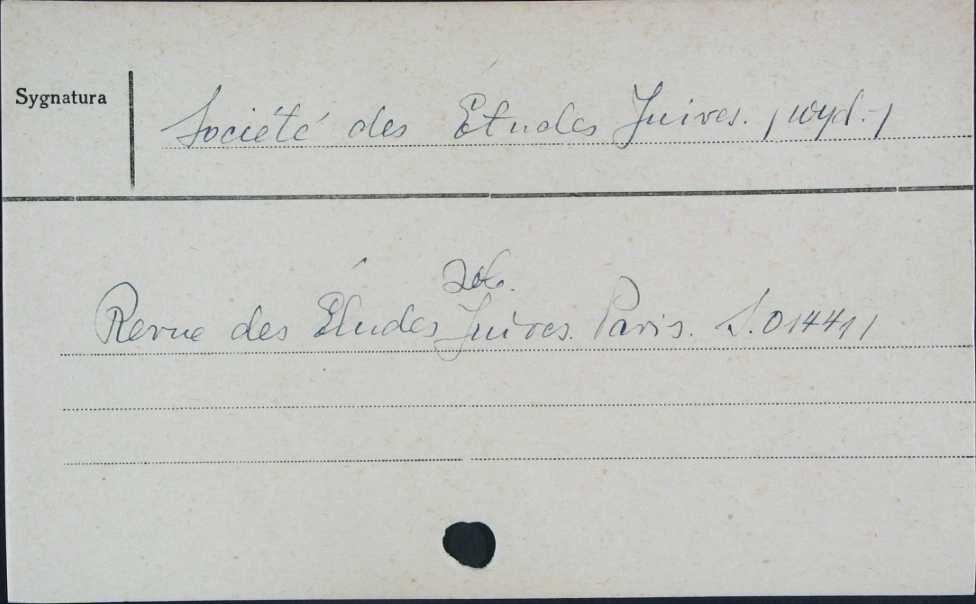 Sygnatura
Société des Études Juives. /wyd./
Zob.
Revue des Études Juives. Paris. S.01441/